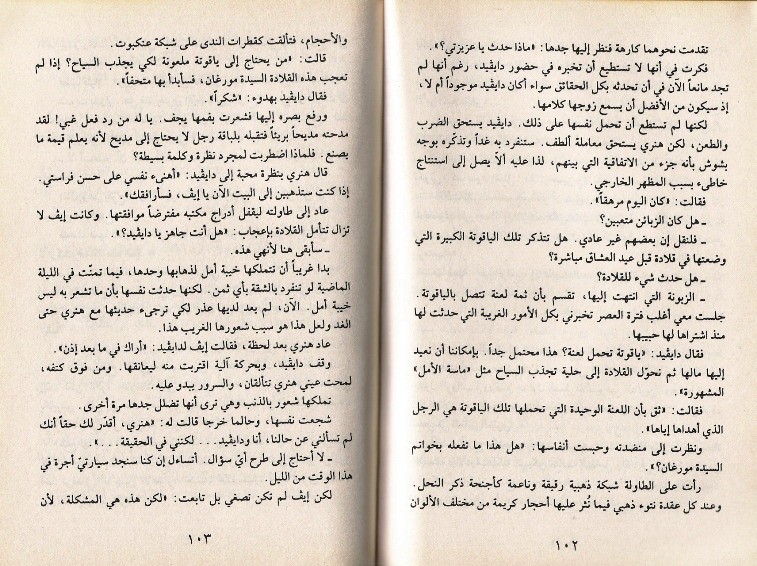 تقدمت نحوهما كارهة فنظر إليها جدها: «ماذا حدث يا عزيزتي؟».
فكرت في أنها لا تستطيع أن تخبره في حضور دايڤيد، رغم أنها لم
تجد مانعاً الآن في أن تحدثه بكل الحقائق سواء أكان دايڤيد موجوداً أم لا،
إذ سيكون من الأفضل أن يسمع زوجها كلامها.
لكنها لم تستطع أن تحمل نفسها على ذلك. دايڤيد يستحق الضرب
والطعن، لكن هنري يستحق معاملة ألطف. ستنفرد به غداً وتذكّره بوجه
بشوش بأنه جزء من الاتفاقية التي بينهم، لذا عليه ألاّ يصل إلى استنتاج
خاطىء بسبب المظهر الخارجي.
فقالت: «كان اليوم مرهقاً».
ـ هل كان الزبائن متعبين؟
ـ فلنقل إن بعضهم غير عادي. هل تتذكر تلك الياقوتة الكبيرة التي
وضعتها في قلادة قبل عيد العشاق مباشرة؟
ـ هل حدث شيء للقلادة؟
ـ الزبونة التي انتهت إليها، تقسم بأن ثمة لعنة تتصل بالياقوتة.
جلست معي أغلب فترة العصر تخبرني بكل الأمور الغريبة التي حدثت لها
منذ اشتراها لها حبيبها.
فقال دايڤيد: «ياقوتة تحمل لعنة؟ هذا محتمل جداً. بإمكاننا أن نعيد
إليها مالها ثم نحوّل القلادة إلى حلية تجذب السياح مثل «ماسة الأمل»
المشهورة».
فقالت: «ثق بأن اللعنة الوحيدة التي تحملها تلك الياقوتة هي الرجل
الذي أهداها إياها».
ونظرت إلى منضدته وحبست أنفاسها: «هل هذا ما تفعله بخواتم
السيدة مورغان؟».
رأت على الطاولة شبكة ذهبية رقيقة وناعمة كأجنحة ذكر النحل.
وعند كل عقدة نتوء ذهبي فيما نُثر عليها أحجار كريمة من مختلف الألوان
١٠٢
والأحجام، فتألقت كقطرات الندى على شبكة عنكبوت.
قالت: «من يحتاج إلى ياقوتة ملعونة لكي يجذب السياح؟ إذا لم
تعجب هذه القلادة السيدة مورغان، فسأبدأ بها متحفاً».
فقال دايڤيد بهدوء: «شكراً».
ورفع بصره إليها فشعرت بفمها يجف. يا له من رد فعل غبي! لقد
مدحته مديحاً بريئاً فتقبله بلباقة رجل لا يحتاج إلى مديح لأنه يعلم قيمة ما
يصنع. فلماذا اضطربت لمجرد نظرة وكلمة بسيطة؟
قال هنري بنظرة محبة إلى دايڤيد: «أهنىء نفسي على حسن فراستي.
إذا كنت ستذهبين إلى البيت الآن يا إيڤ، فسأرافقك».
عاد إلى طاولته ليقفل أدراج مكتبه مفترضاً موافقتها. وكانت إيڤ لا
تزال تتأمل القلادة بإعجاب: «هل أنت جاهز يا دايڤيد؟».
ـ سأبقى هنا لأنهي هذه.
بدا غريباً أن تتملكها خيبة أمل لذهابها وحدها، فيما تمنّت في الليلة
الماضية لو تنفرد بالشقة بأي ثمن. لكنها حدثت نفسها بأن ما تشعر به ليس
خيبة أمل. الآن، لم يعد لديها عذر لكي ترجىء حديثها مع هنري حتى
الغد ولعل هذا هو سبب شعورها الغريب هذا.
عاد هنري بعد لحظة، فقالت إيڤ لدايڤيد: «أراك في ما بعد إذن».
وقف دايڤيد، وبحركة آلية اقتربت منه ليعانقها. ومن فوق كتفه،
لمحت عيني هنري تتألقان، والسرور يبدو عليه.
تملكها شعور بالذنب وهي ترى أنها تضلل جدها مرة أخرى.
شجعت نفسها، وحالما خرجا قالت له: «هنري، أقدّر لك حقاً أنك
لم تسألني عن حالنا، أنا ودايڤيد... لكنني في الحقيقة...».
ـ لا أحتاج إلى طرح أيّ سؤال. أتساءل إن كنا سنجد سيارتيّ أجرة في
هذا الوقت من الليل.
لكن إيڤ لم تكن تصغي بل تابعت: «لكن هذه هي المشكلة، لأن
١٠٣